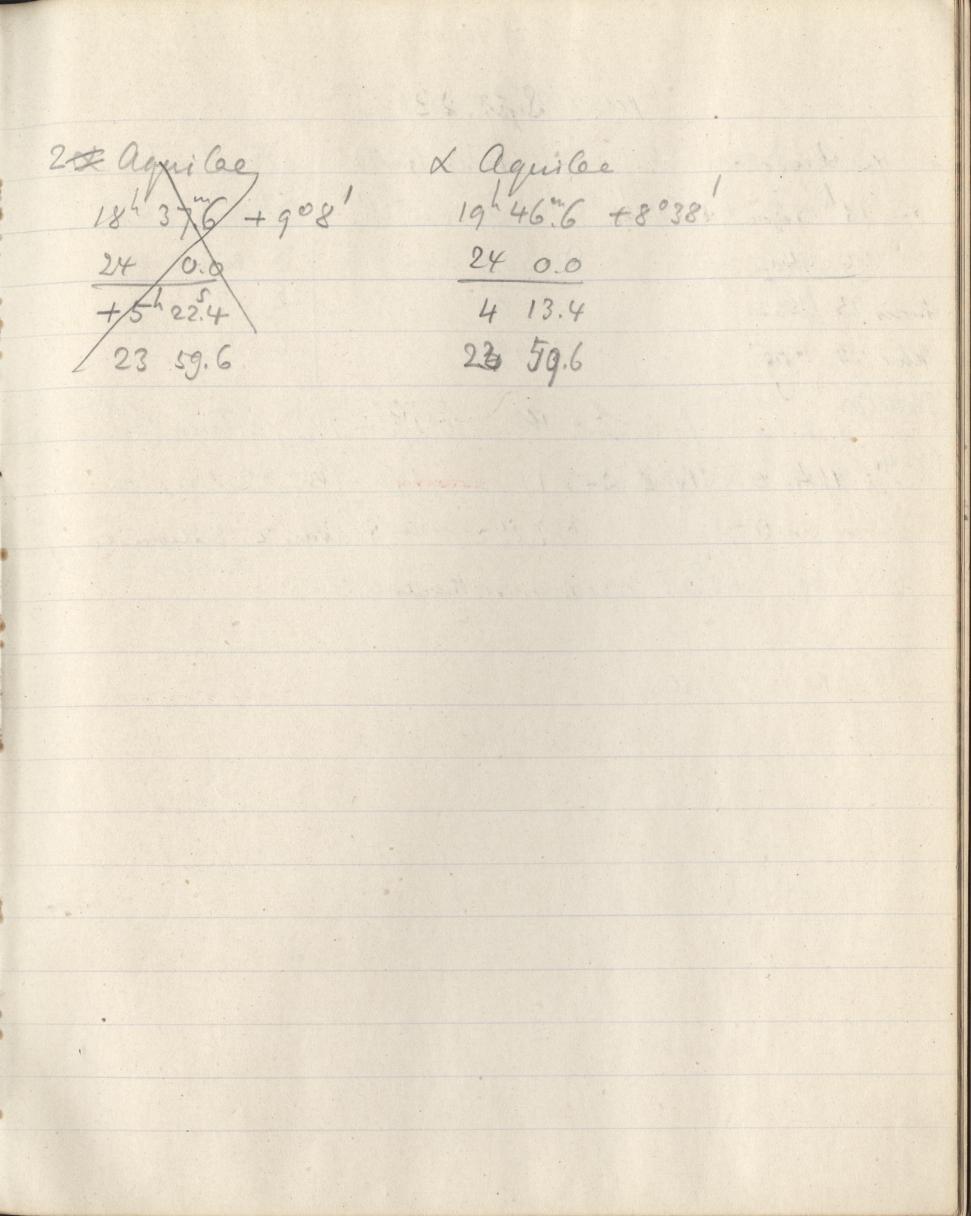 2 Aquilae
18h 37m.6 + 9°8'
24 0.0
+ 5h 22s.4
23 59.6
α Aquilae
19h 46m.6 + 8°38'
24 0.0
4 13.4
23 59.6